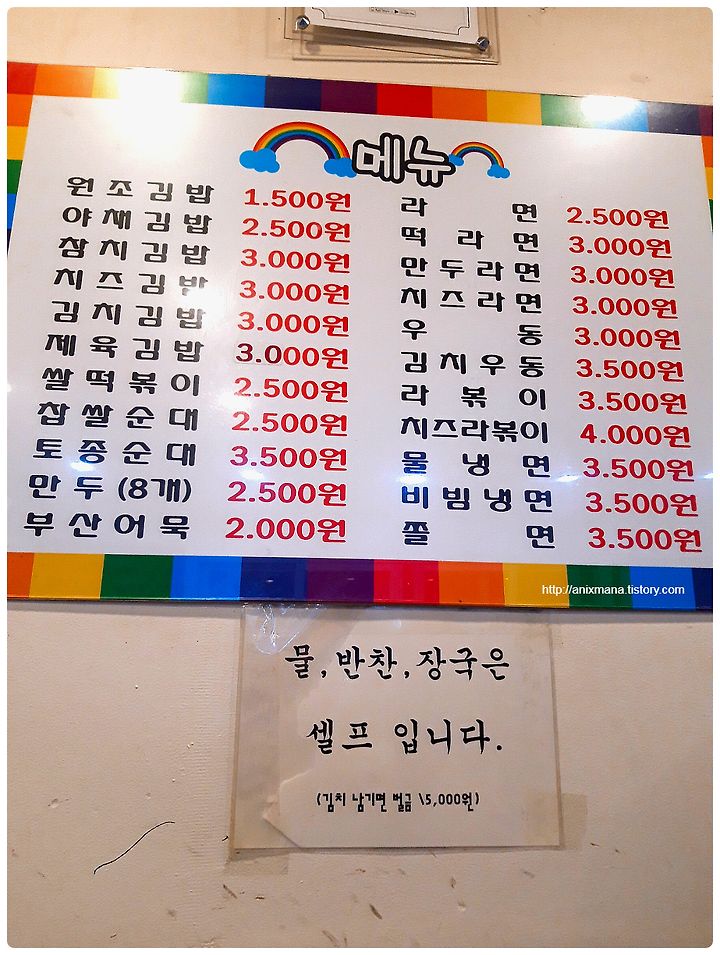 메뉴
원조김밥 1.500원
야채김밥 2.500원
참치김밥 3.000원
치즈김밥 3.000원
김치김밥 3.000원
제육김밥 3.000원
쌀떡볶이 2.500원
찹쌀순대 2.500원
토종순대 3.500원
만두(8개) 2.500원
부산어묵 2.000원
라면 2.500원
떡라면 3.000원
만두라면 3.000원
치즈라면 3.000원
우동 3.000원
김치우동 3.500원
라볶이 3.500원
치즈라볶이 4.000원
물냉면 3.500원
비빔냉면 3.500원
쫄면 3.500원
http://anixmana.tistory.com
물,반찬,장국은
셀프 입니다.
(김치 남기면 벌금 \5,000원)